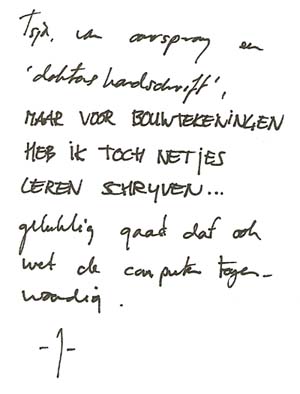 Tsja, van oorsprong een
'doktershandschrift',
MAAR VOOR BOUWTEKENINGEN
HEB IK TOCH NETJES
LEREN SCHRIJVEN...
gelukkig gaat dat ook
met de computer tegen-
woordig.
-1-